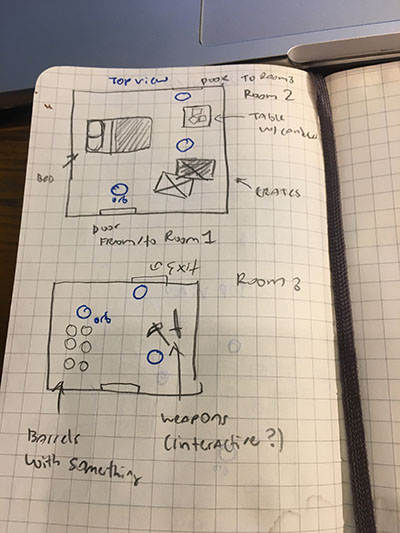 Top view
Door To Room 3
Room 2
Table
w/candles
BED
orb
CRATES
Door
From/to Room 1
Room 3
orb
Barrels
with something
weapons
(interactive?)